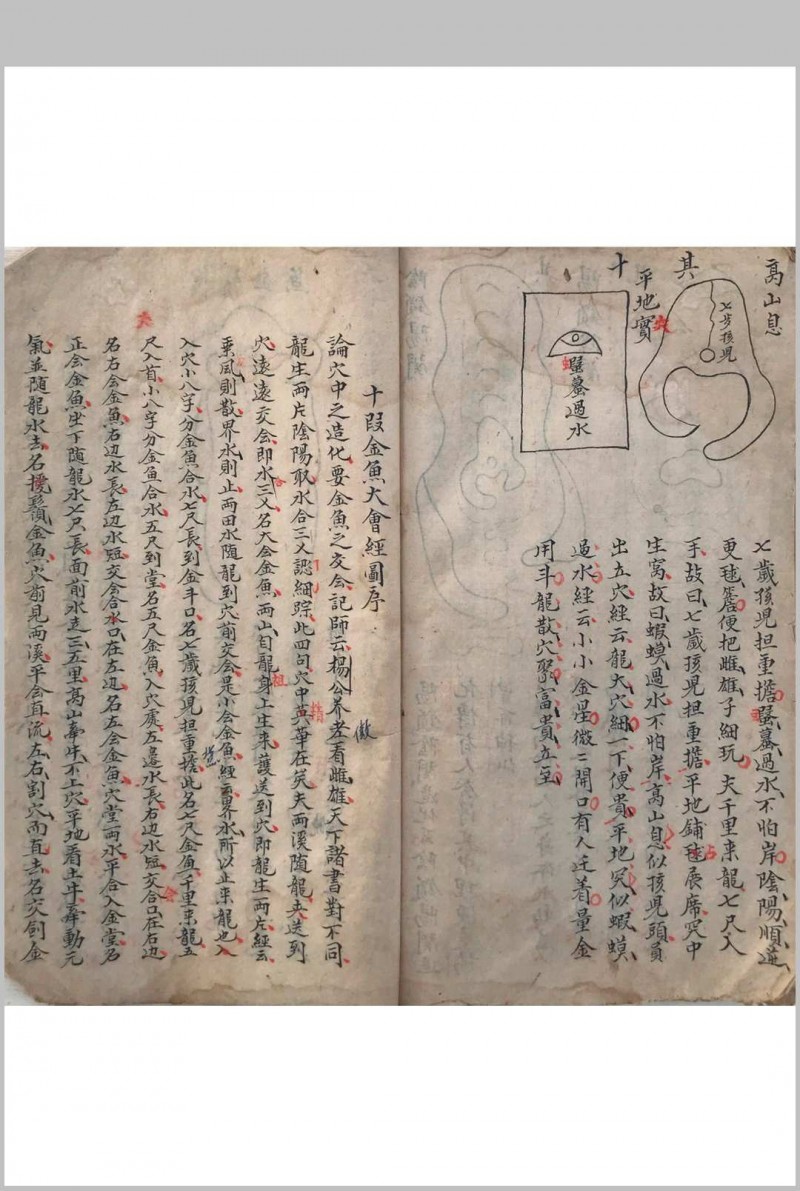 高山息
其
七歩孩児
平地實
穴
十
蝦蟇過水
七歲孩児担重擔蝦蟇過水不怕岸陰陽順逆
更毬簷便把雌雄子細玩夫千里来龍七尺入
手故曰七歲孩児担重擔平地鋪毡展席穴中
生窩故曰蝦蟆過水不怕岸高山息似孩児頭員
出立穴經云龍大穴細一下便貴平地突似蝦蟆
過水經云小小金星微二開口有人迁着量金
用斗龍散穴聚富貴立至
十叚金魚大會經圖序
論穴中之造化要金魚之交会記師云楊公养老看雌雄天下諸書對不同
龍生兩片陰陽取水合三义認細踪此四句穴中英華在焉夫兩溪随龍夹送到
穴遠遠交会即水三义名大会金魚兩山自龍身上生来護送到穴即龍生兩片經云
乗風則散界水則止兩田水随龍到穴前交会是小会金魚經云界水所以止来龍也入
入穴小八字分金魚合水七尺長到金斗口名七歲孩児担重擔此名七尺金魚千里来龍五
尺入首小八字分金魚合水五尺到堂名五尺金魚入穴處左邉水長右边水短交合口在右边
名右会金魚右边水長左边水短交会合水口在左边名左会金魚穴堂兩水平合入金堂名
正会金魚坐下随龍水七尺長面前水走三五里高山牽牛不上穴平地看土牛牽動元
氣並随龍水去名攪鬚金魚穴前見兩溪平会直流左右割穴而直去名交劍金